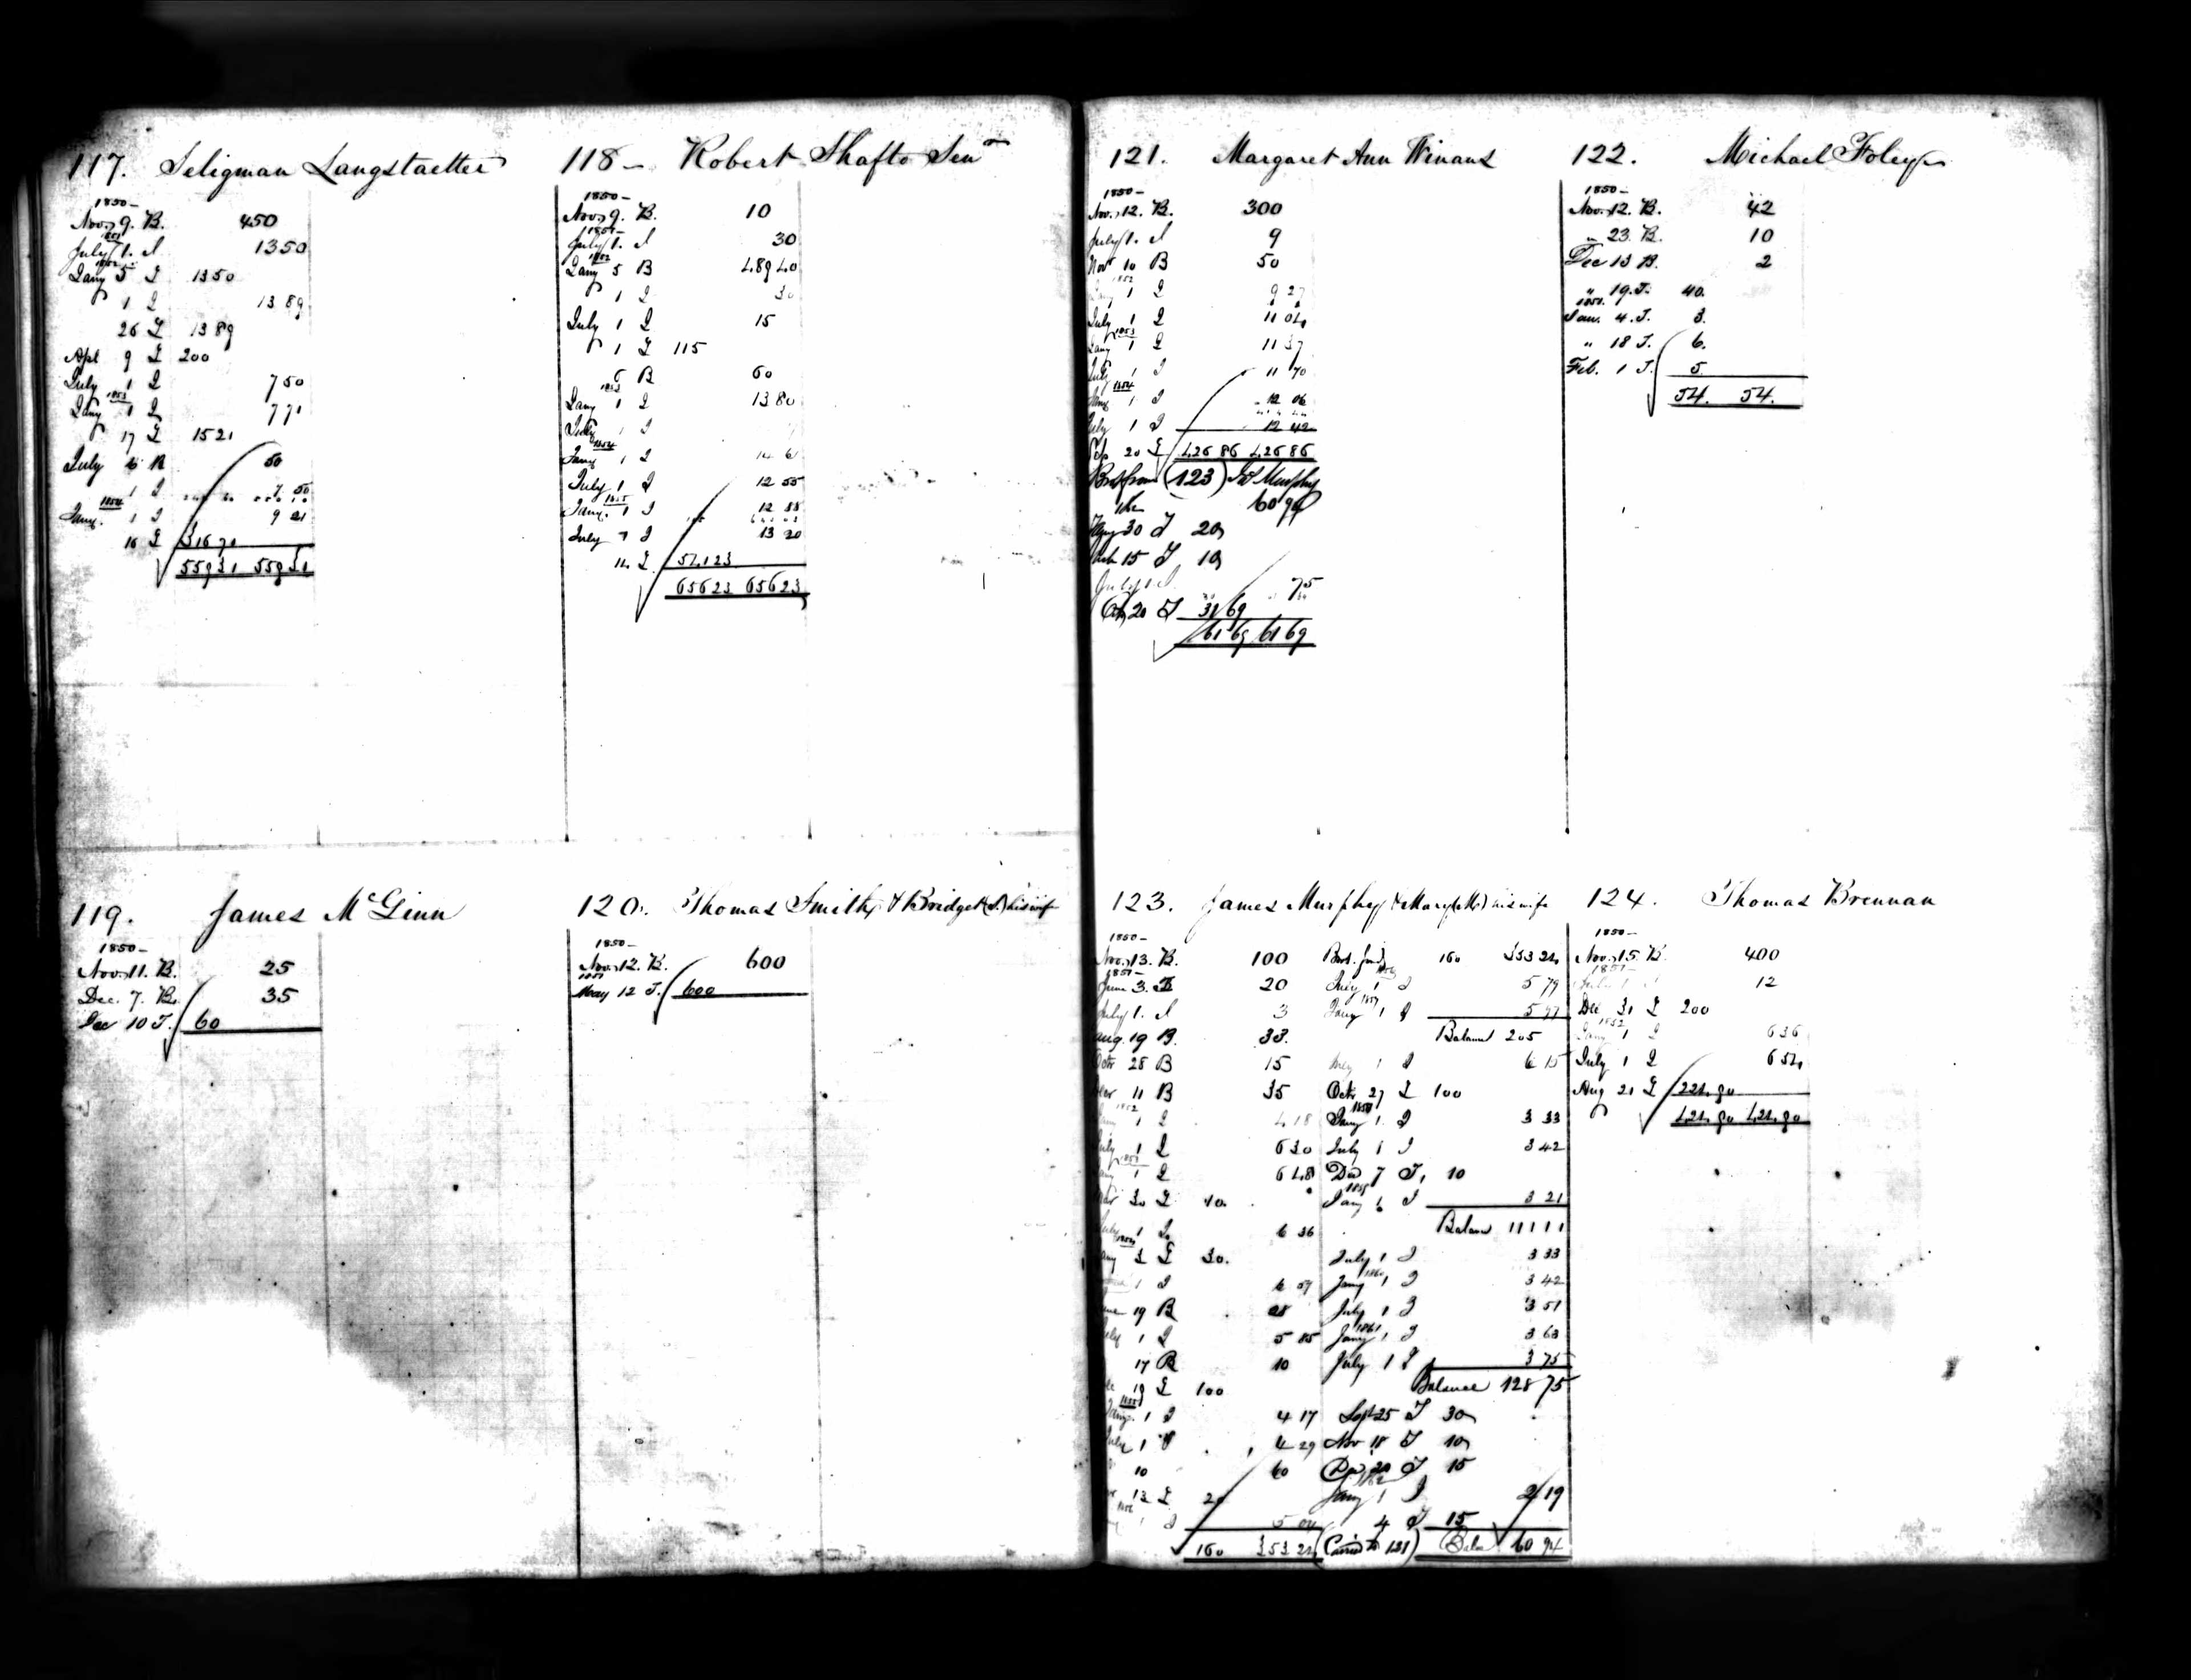 117. Seligman Langstaetter
1850-
Nov. 9. B. 450
July 1. I 1350
1852
Jany 5 T 1350
1 I 13 89
26 T 13 89
Apl 9 T 200
July 1 I 7 50
1853
Jany 1 I 7 71
17 T 15 21
July 6 B 50
1 I 7 50
1854
Jany. 1 I 9 21
16 T 316 71
559 31 559 31
118- Robert Shafto Senr
1850-
Nov. 9. B. 10
1851-
July 1. I 30
1852
Jany 5 B 489 40
1 I 30
July 1 I 15
1 T 115
6 B 60
1853
Jany 1 I 13 80
July 1 I
1854
Jany 1 I
July 1 I 12 55
1855
Jany. 1 I 12 88
July 1 I 13 20
11. T 541 23
656 23 656 23
119. James McGinn
1850-
Nov. 11. B. 25
Dec. 7. B. 35
Dec 10 T. 60
120. Thomas Smith & Bridget (S.) his wife
1850-
Nov. 12. B. 600
1851
May 12 T. 600
121. Margaret Ann Winans
1850-
Nov. 12. B. 300
July 1. I 9
Nov 10 B 50
1852
1 I 9 27
July 1 I 11 04
1853
Jany 1 I 11 37
July 1 I 11 70
1854
Jany 1 I 12 06
July 1 I 12 42
Sep 20 T 426 86 426 86
Brot from (123) Js Murphy
60 94
Jany 30 T 20
Mch 15 T 10
July 1. I 75
Oct 20 T 31 69
61 69 61 69
122. Michael Foley
1850-
Nov. 12. B. 42
" 23. B. 10
Dec 13 B. 2
" 19. T. 40.
1851.
Jan. 4. T. 3.
" 18 T. 6.
Feb. 1 T. 5.
54. 54.
123. James Murphy & Mary (M.) his wife
1850-
Nov. 13. B. 100
1851-
June 3. B 20
July 1. I 3
Aug. 19 B. 33.
Octr 28 B 15
11 B 35
1852
1 I 4 18
July 1 I 6 30
1853
1 I 6 48
30 T 40.
July 1 I 6 36
1854
Jany 3 T 30.
1 I 6 09
June 19 B 28
July 1 I 5 85
17 B 10
19 T 100
1855
Jany. 1 I 4 17
July 1 I 4 29
10 60
13 T 20
1856
1 I 5 04
160 353 24 (Carried to 121)
Brot. fwd 160 353 24
1856
July 1 I 5 79
1857
Jany 1 I 5 97
Balance 205
July 1 I 6 15
Octr 27 T 100
1858
Jany 1. I 3 33
July 1 I 3 42
Dec 7 T. 10
1859
Jany 1 I 3 21
Balance 111 11
July 1 I 3 33
1860
Jany 1 I 3 42
July 1 I 3 51
1861
Jany 1 I 3 63
July 1 I 3 75
Balance 128 75
Sept 25 T 30
Nov 18 T 10
Dec 20 T 15
1862
Jany 1 I 2 19
4 T 15
Balce 60 94
124. Thomas Brennan
1850-
Nov. 15. B. 400
1851-
July 1 I 12
Dec 31 T 200
1852
Jany 1 I 6 36
July 1 I 6 54
Aug 21 T 224 90
424 90 424 90